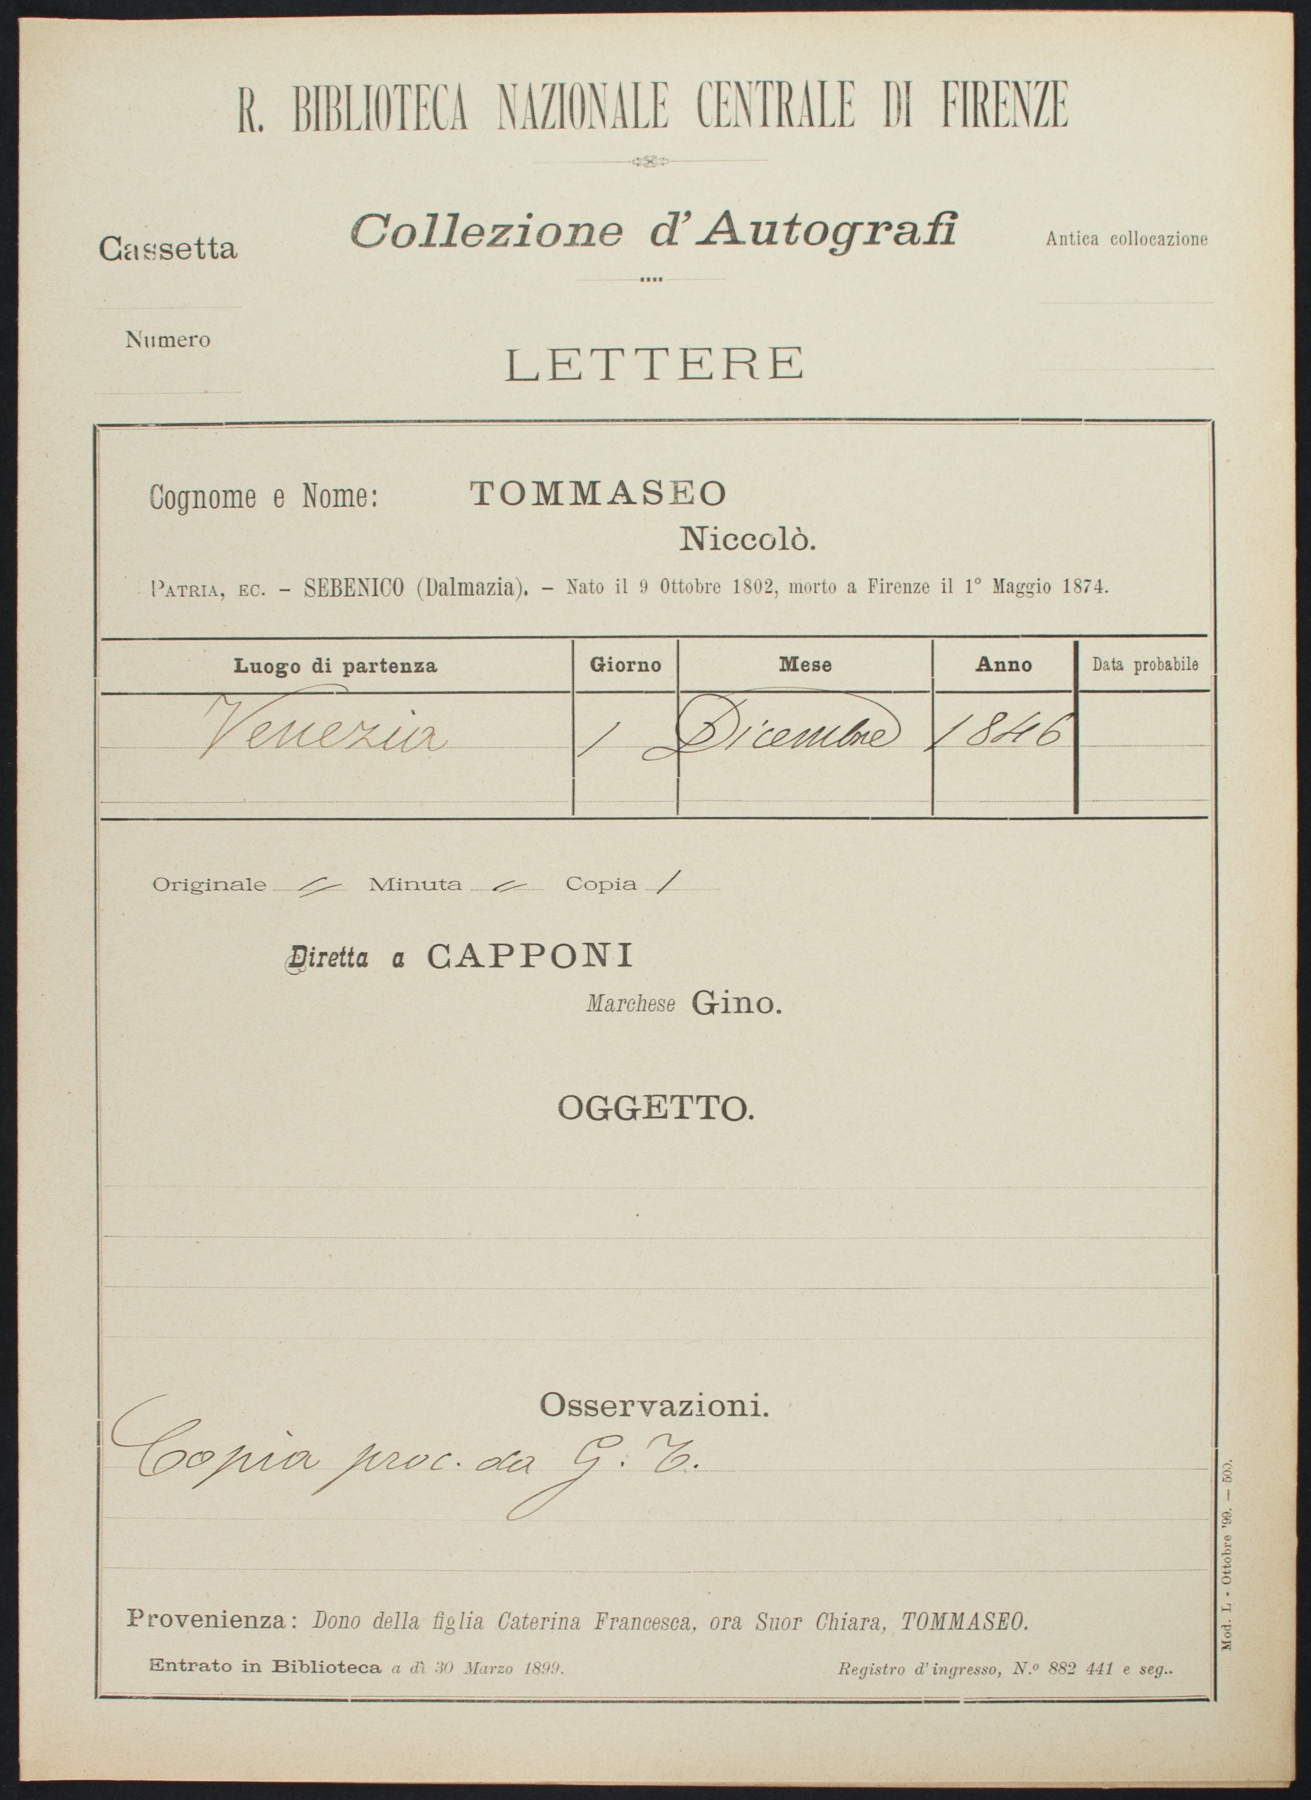 R. BIBLIOTECA NAZIONALE CENTRALE DI FIRENZE
Collezione d'Autografi
Cassetta
Antica collocazione
Numero
LETTERE
Cognome e Nome: TOMMASEO
Niccolò.
PATRIA, EC. – SEBENICO (Dalmazia). – Nato il 9 Ottobre 1802, morto a Firenze il 1º Maggio 1874.
Luogo di partenza Giorno Mese Anno Data probabile
Venezia 1 Dicembre 1846
Originale // Minuta // Copia 1
Diretta a CAPPONI
Marchese Gino.
OGGETTO.
Osservazioni.
Copia proc. da G. T.
Provenienza: Dono della figlia Caterina Francesca, ora Suor Chiara, TOMMASEO.
Entrato in Biblioteca a dì 30 Marzo 1899. Registro d'ingresso, N.º 882 441 e seg..
Mod. L - Ottobre '99. — 500.